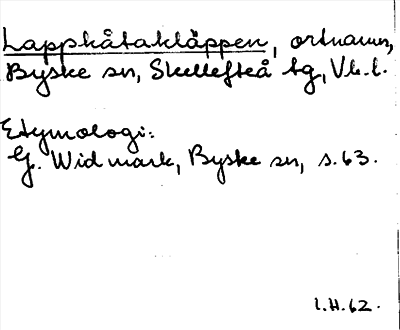 Lappkåtakläppen, ortnamn,
Byske sn, Skellefteå tg, Vb. l.
Etymologi:
G. Widmark, Byske sn, s. 63.
l.H.62.